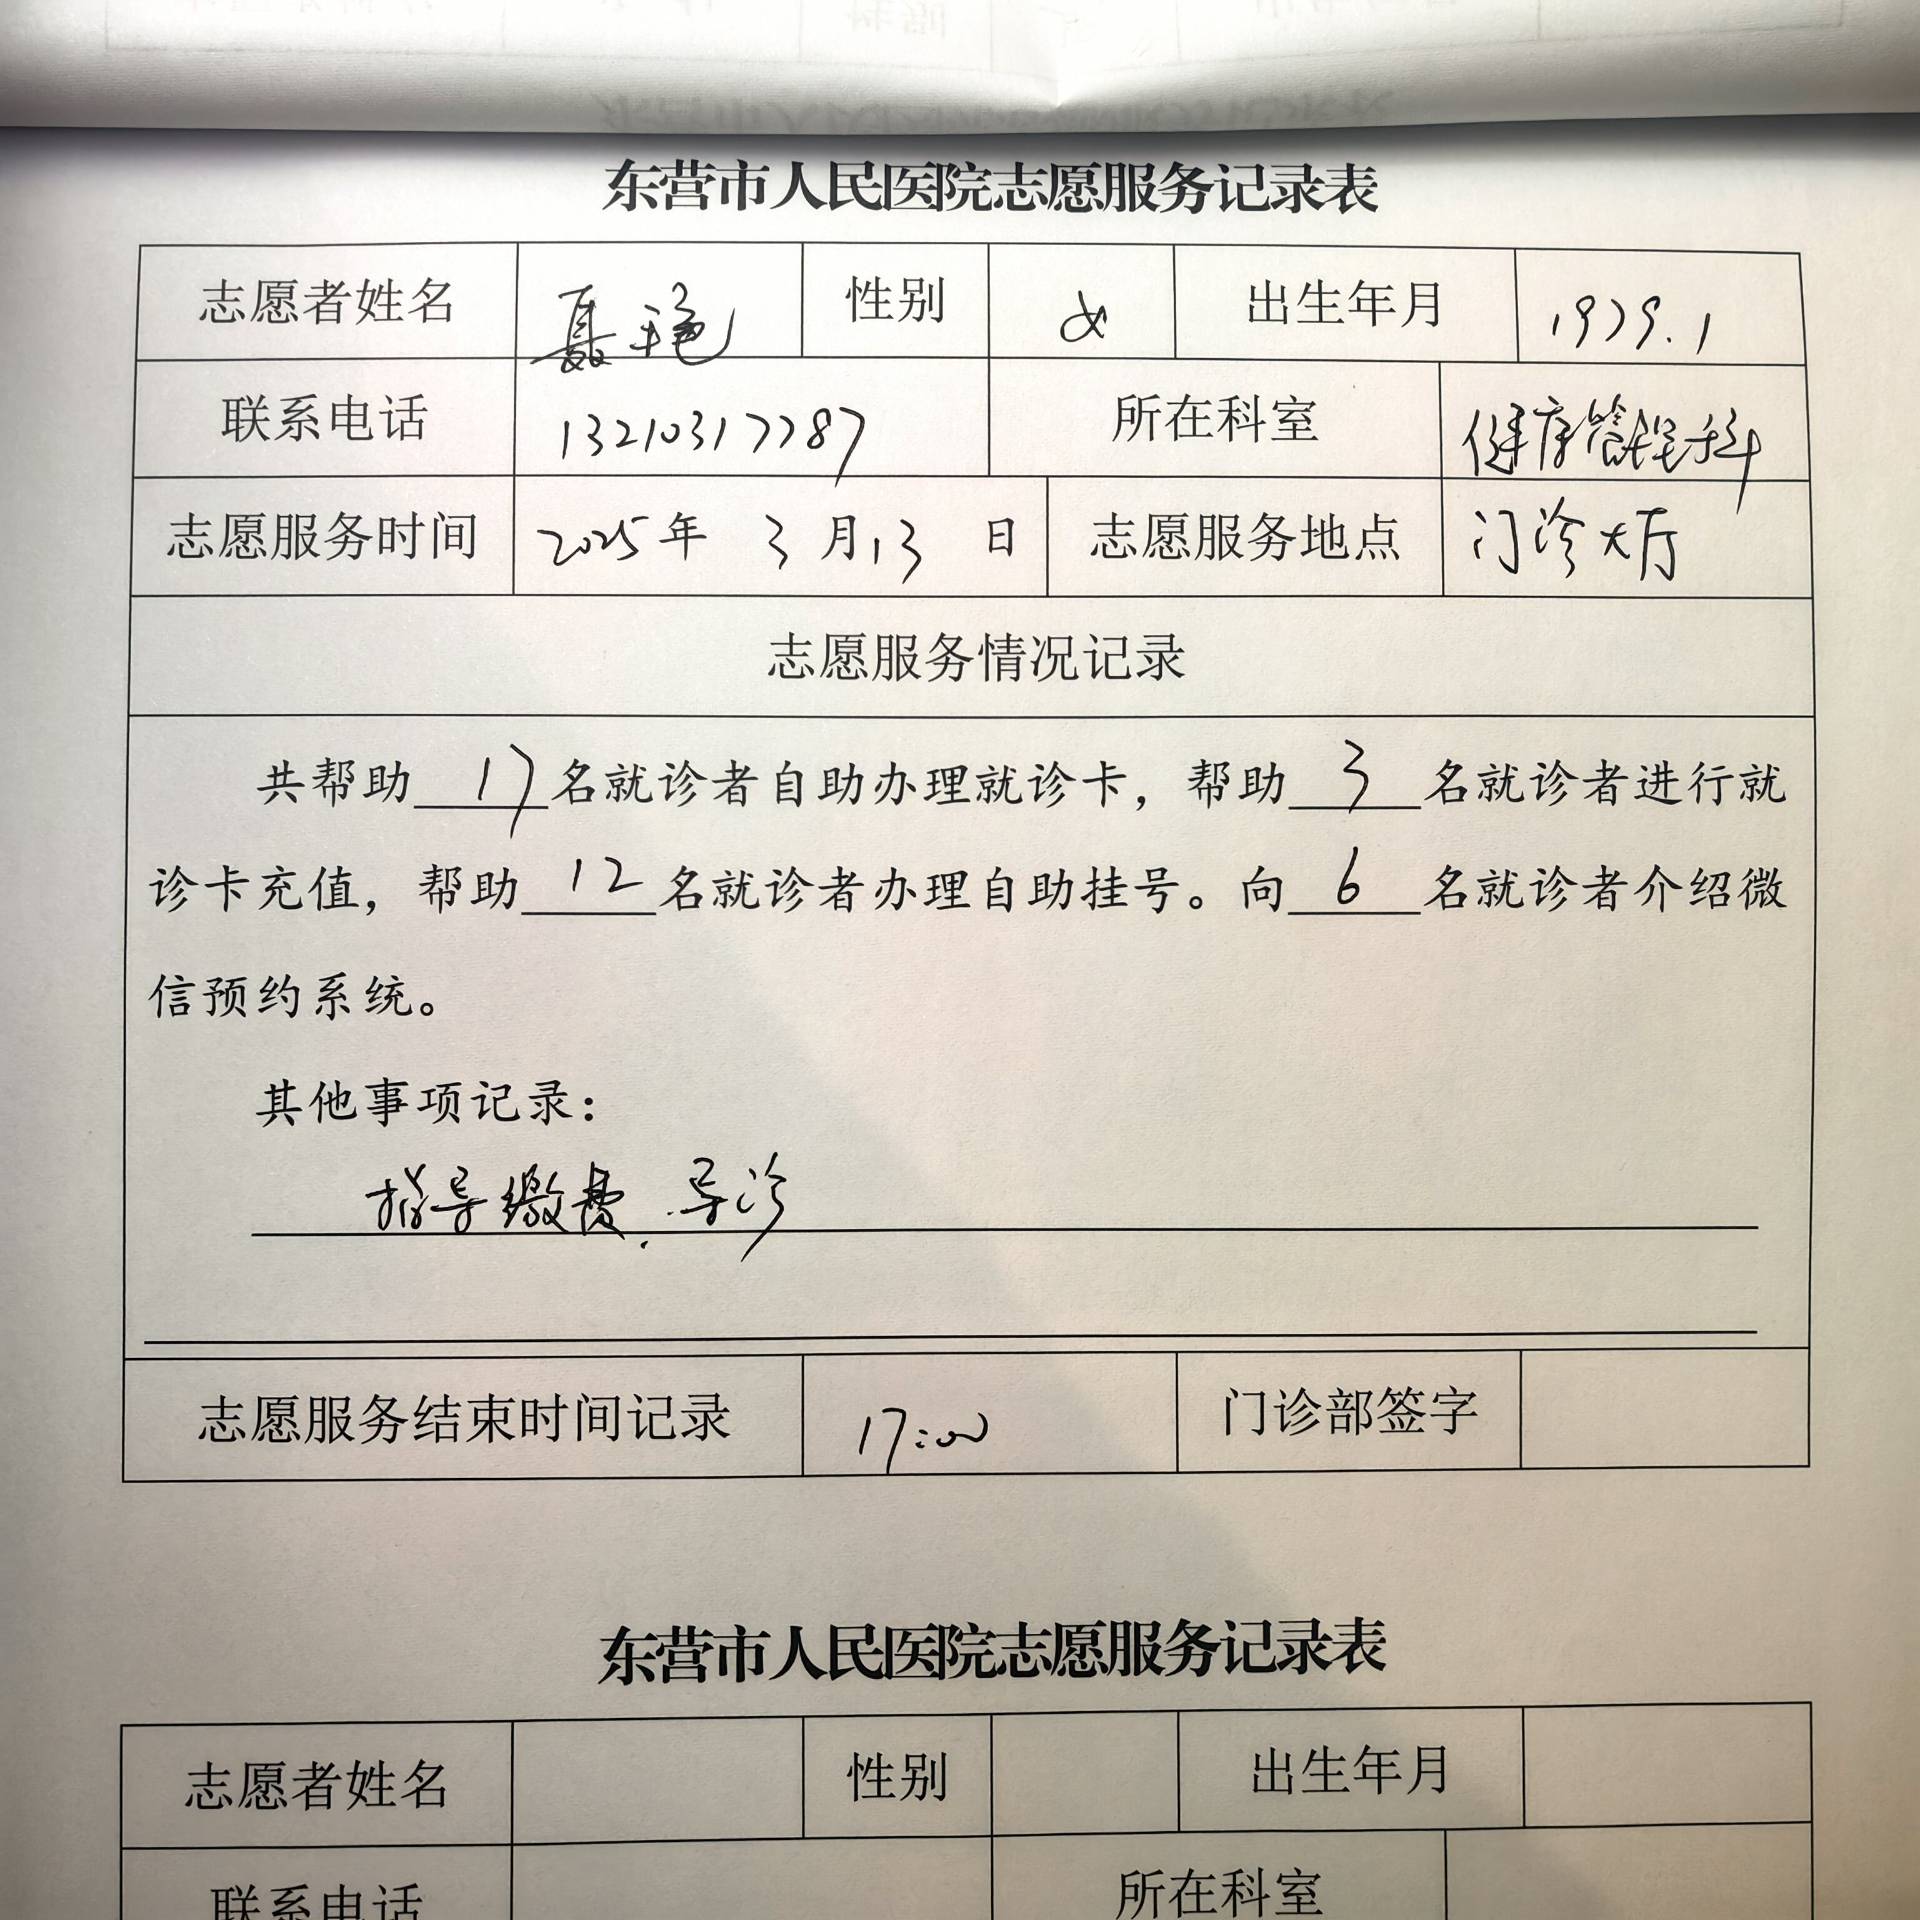 东营市人民医院志愿服务记录表
志愿者姓名 聂艳 性别 女 出生年月 1979.1
联系电话 13210317787 所在科室 健康管理科
志愿服务时间 2025年 3 月13 日 志愿服务地点 门诊大厅
志愿服务情况记录
共帮助17名就诊者自助办理就诊卡，帮助3名就诊者进行就
诊卡充值，帮助12名就诊者办理自助挂号。向6名就诊者介绍微
信预约系统。
其他事项记录：
指导缴费、导诊
志愿服务结束时间记录 17:00 门诊部签字
东营市人民医院志愿服务记录表
志愿者姓名 性别 出生年月
联系电话 所在科室